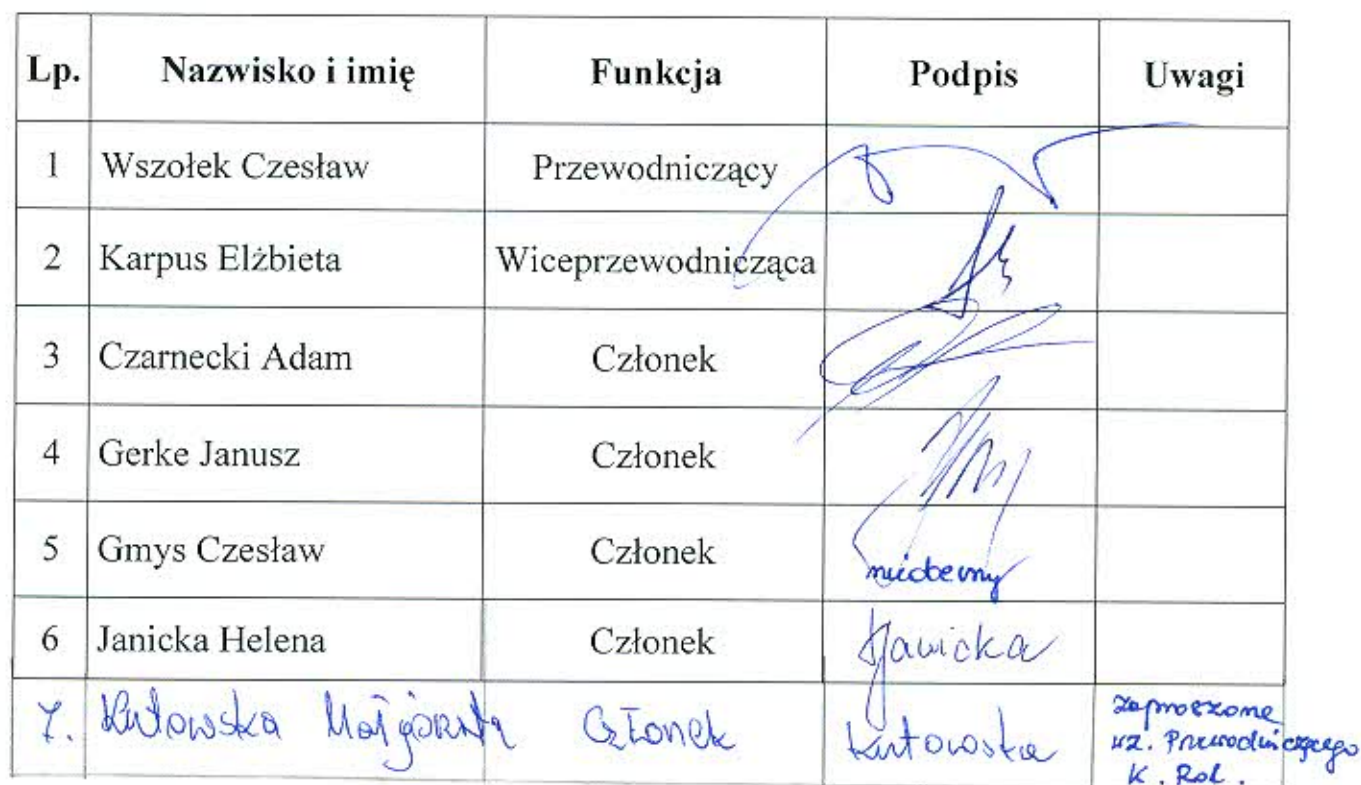 Lp. Nazwisko i imię Funkcja Podpis Uwagi
1 Wszołek Czesław Przewodniczący
2 Karpus Elżbieta Wiceprzewodnicząca
3 Czarnecki Adam Członek
4 Gerke Janusz Członek
5 Gmys Czesław Członek nieobecny
6 Janicka Helena Członek HJanicka
7. Kutowska Małgorzata Członek Kutowska zaproszone
wz. Przewodniczącego
K. Rol.